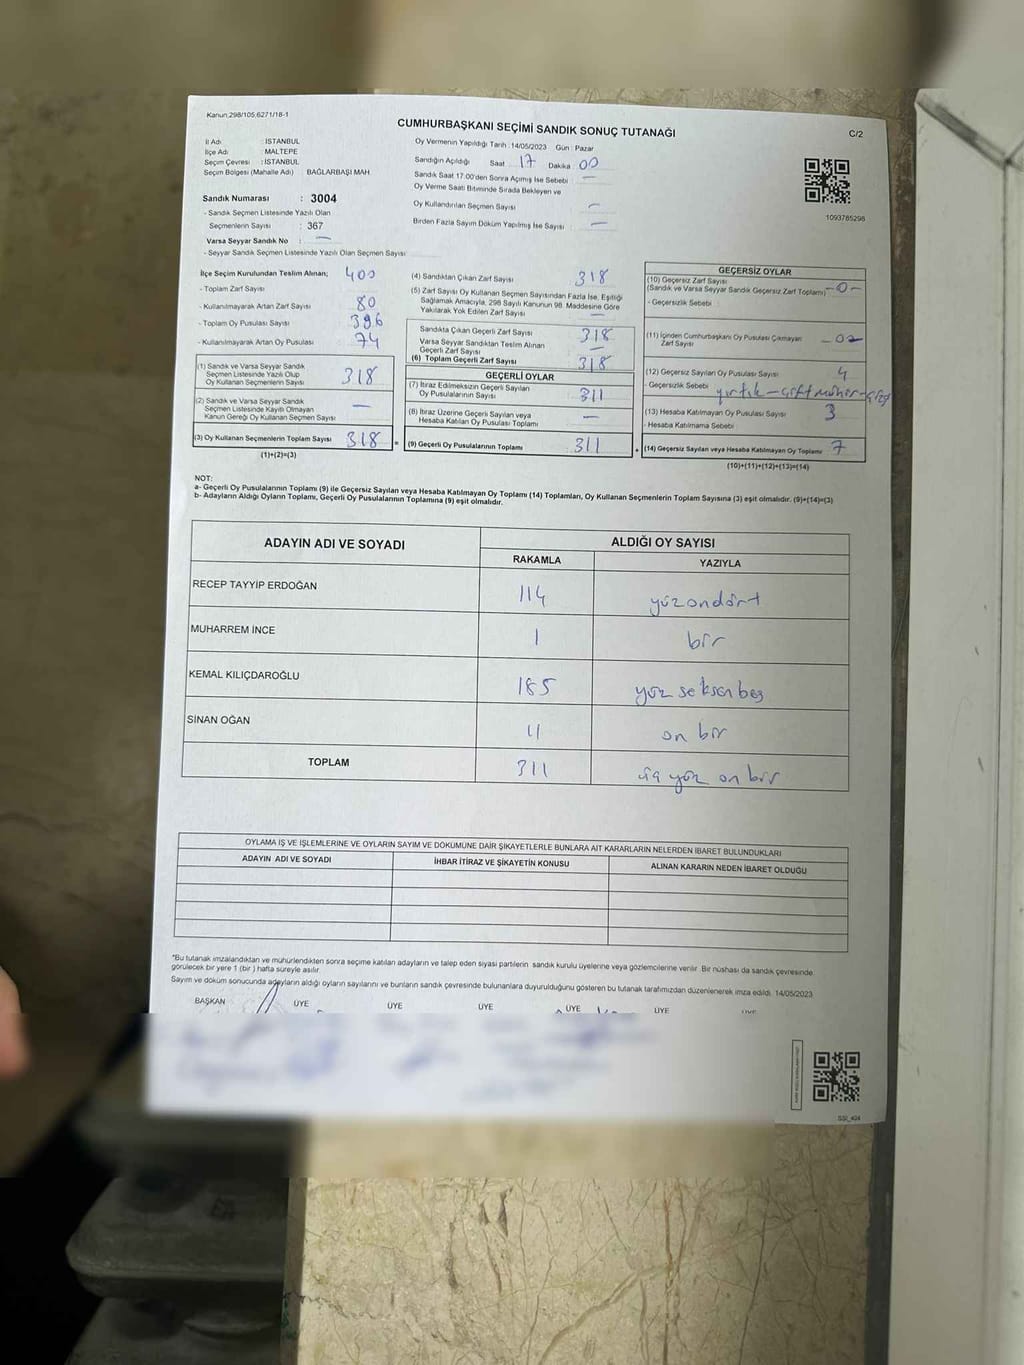 Kanun,298/105;6271/18-1
CUMHURBAŞKANI SEÇİMİ SANDIK SONUÇ TUTANAĞI
C/2
İl Adı : İSTANBUL
İlçe Adı : MALTEPE
Seçim Çevresi : İSTANBUL
Seçim Bölgesi (Mahalle Adı) BAĞLARBAŞI MAH.
Sandık Numarası : 3004
- Sandık Seçmen Listesinde Yazılı Olan
Seçmenlerin Sayısı : 367
Varsa Seyyar Sandık No : —
- Seyyar Sandık Seçmen Listesinde Yazılı Olan Seçmen Sayısı
Oy Vermenin Yapıldığı Tarih : 14/05/2023 Gün : Pazar
Sandığın Açıldığı Saat 17 Dakika 00
Sandık Saat 17.00'den Sonra Açımış İse Sebebi —
Oy Verme Saati Bitiminde Sırada Bekleyen ve
Oy Kullandırılan Seçmen Sayısı —
Birden Fazla Sayım Döküm Yapılmış İse Sayısı —
1093785298
İlçe Seçim Kurulundan Teslim Alınan; 400
- Toplam Zarf Sayısı
- Kullanılmayarak Artan Zarf Sayısı 80
- Toplam Oy Pusulası Sayısı 396
- Kullanılmayarak Artan Oy Pusulası 74
(1) Sandık ve Varsa Seyyar Sandık
Seçmen Listesinde Yazılı Olup
Oy Kullanan Seçmenlerin Sayısı 318
(2) Sandık ve Varsa Seyyar Sandık
Seçmen Listesinde Kayıtlı Olmayan
Kanun Gereği Oy Kullanan Seçmen Sayısı —
(3) Oy Kullanan Seçmenlerin Toplam Sayısı 318 =
(1)+(2)=(3)
(4) Sandıktan Çıkan Zarf Sayısı 318
(5) Zarf Sayısı Oy Kullanan Seçmen Sayısından Fazla İse, Eşitliği
Sağlamak Amacıyla, 298 Sayılı Kanunun 98. Maddesine Göre
Yakılarak Yok Edilen Zarf Sayısı —
Sandıkta Çıkan Geçerli Zarf Sayısı 318
Varsa Seyyar Sandıktan Teslim Alınan
Geçerli Zarf Sayısı —
(6) Toplam Geçerli Zarf Sayısı 318
GEÇERLİ OYLAR
(7) İtiraz Edilmeksizin Geçerli Sayılan
Oy Pusulasının Sayısı 311
(8) İtiraz Üzerine Geçerli Sayılan veya
Hesaba Katılan Oy Pusulası Toplamı —
(9) Geçerli Oy Pusulalarının Toplamı 311 +
GEÇERSİZ OYLAR
(10) Geçersiz Zarf Sayısı
(Sandık ve Varsa Seyyar Sandık Geçersiz Zarf Toplamı) -0-
- Geçersizlik Sebebi
(11) İçinden Cumhurbaşkanı Oy Pusulası Çıkmayan
Zarf Sayısı
(12) Geçersiz Sayılan Oy Pusulası Sayısı 4
- Geçersizlik Sebebi yırtık-çift mühür-
(13) Hesaba Katılmayan Oy Pusulası Sayısı 3
- Hesaba Katılmama Sebebi
(14) Geçersiz Sayılan veya Hesaba Katılmayan Oy Toplamı 7
(10)+(11)+(12)+(13)=(14)
NOT:
a- Geçerli Oy Pusulalarının Toplamı (9) ile Geçersiz Sayılan veya Hesaba Katılmayan Oy Toplamı (14) Toplamları, Oy Kullanan Seçmenlerin Toplam Sayısına (3) eşit olmalıdır. (9)+(14)=(3)
b- Adayların Aldığı Oyların Toplamı, Geçerli Oy Pusulalarının Toplamına (9) eşit olmalıdır.
ADAYIN ADI VE SOYADI
ALDIĞI OY SAYISI
RAKAMLA YAZIYLA
RECEP TAYYIP ERDOĞAN 114 yüzondört
MUHARREM İNCE 1 bir
KEMAL KILIÇDAROĞLU 185 yüz seksen beş
SİNAN OĞAN 11 on bir
TOPLAM 311 üç yüz on bir
OYLAMA İŞ VE İŞLEMLERİNE VE OYLARIN SAYIM VE DÖKÜMÜNE DAİR ŞİKAYETLERLE BUNLARA AİT KARARLARIN NELERDEN İBARET BULUNDUKLARI
ADAYIN ADI VE SOYADI İHBAR İTİRAZ VE ŞİKAYETİN KONUSU ALINAN KARARIN NEDEN İBARET OLDUĞU
*Bu tutanak imzalandıktan ve mühürlendikten sonra seçime katılan adayların ve talep eden siyasi partilerin sandık kurulu üyelerine veya gözlemcilerine verilir. Bir nüshası da sandık çevresinde
görülecek bir yere 1 (bir ) hafta süreyle asılır.
Sayım ve döküm sonucunda adayların aldığı oyların sayılarını ve bunların sandık çevresinde bulunanlara duyurulduğunu gösteren bu tutanak tarafımızdan düzenlenerek imza edildi. 14/05/2023
BAŞKAN ÜYE ÜYE ÜYE ÜYE ÜYE ÜYE